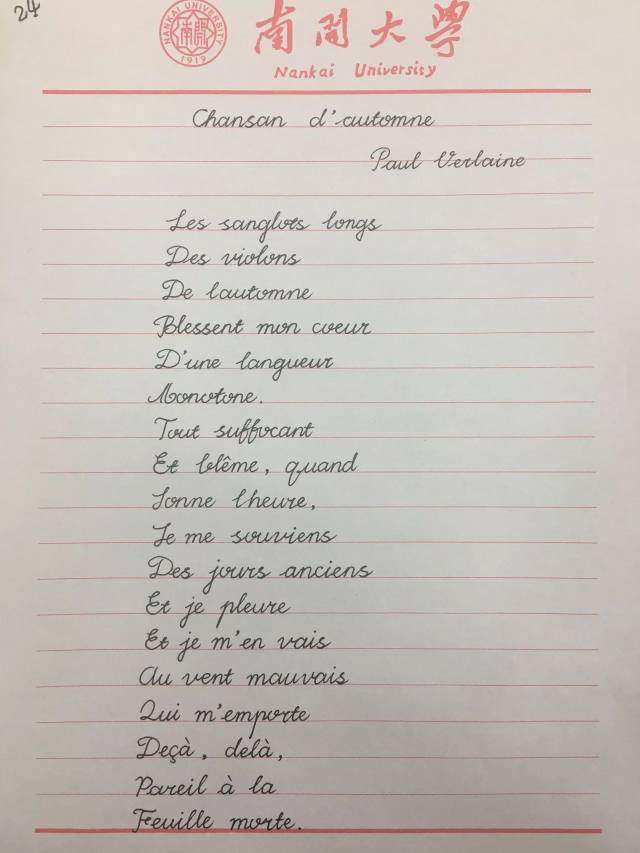 24
NANKAI UNIVERSITY
南開
1919
南開大學
Nankai University
Chansan d'automne
Paul Verlaine
Les sanglots longs
Des violons
De lautomne
Blessent mon coeur
D'une langueur
Monotone.
Tout suffocant
Et blême, quand
Sonne lheure,
Je me souviens
Des jours anciens
Et je pleure
Et je m'en vais
Au vent mauvais
Qui m'emporte
Deçà, delà,
Pareil à la
Feuille morte.